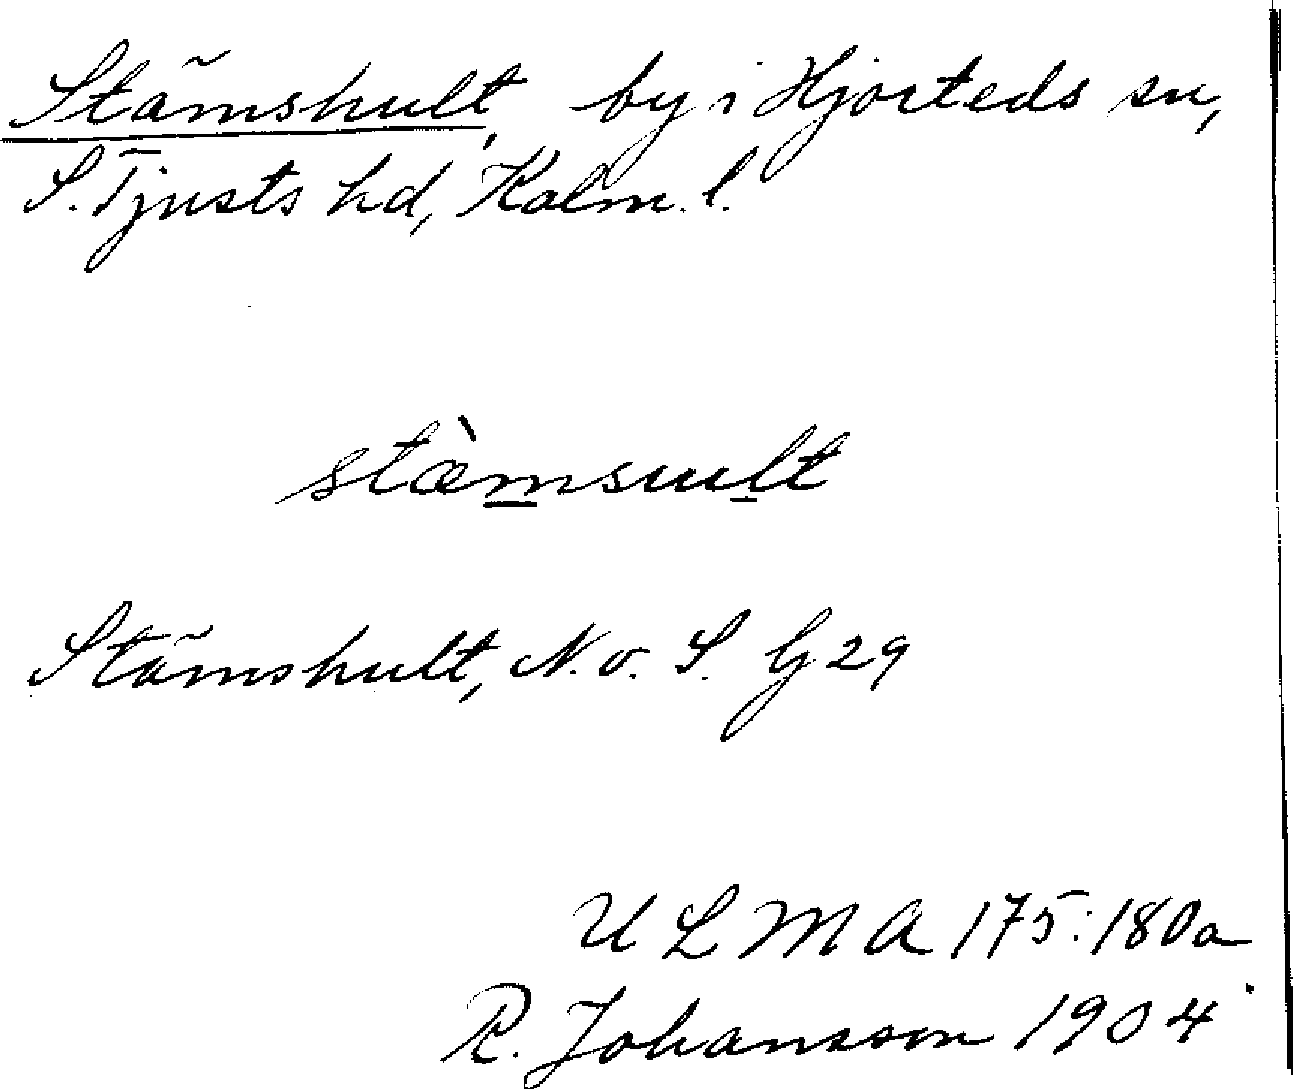 Stämshult, by i Hjorteds sn,
S. Tjusts hd, Kalm. l.
stæ̀m̲sul̲t
Stämshult, N. o. S. G 29
ULMA 175:180a
R. Johansson 1904